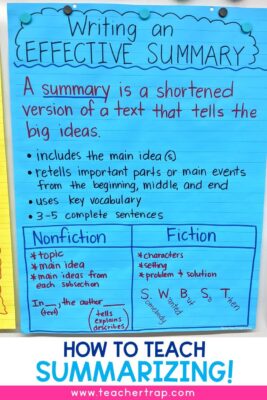 Writing an
EFFECTIVE SUMMARY
A summary is a shortened
version of a text that tells the
big ideas.
• includes the main idea(s)
• retells important parts or main events
from the beginning, middle, and end
• uses key vocabulary
• 3-5 complete sentences
Nonfiction
* topic
* main idea
* main ideas from
each subsection
In __, the author ___
(text)
(tells
explains
describes)
Fiction
* characters
* setting
* problem + solution
S. W. B. S. T.
Somebody Wanted But So Then
HOW TO TEACH
SUMMARIZING!
www.teachertrap.com